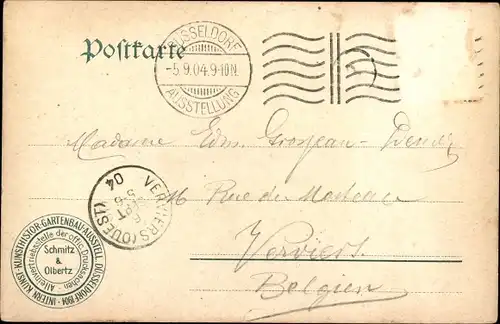 Postkarte
DÜSSELDORF
-5.9.04.9-10N.
AUSSTELLUNG
Madame Edm. Grosjean-
16 Rue du
Verviers
Belgien
VERVIERS (OUEST)
SEPT
5-6
04
INTERN. KUNST-KUNSTHISTOR.-GARTENBAU-AUSSTELL. DÜSSELDORF 1904
Alleinvertriebsstelle der offic. Drucksachen
Schmitz
&
Olbertz